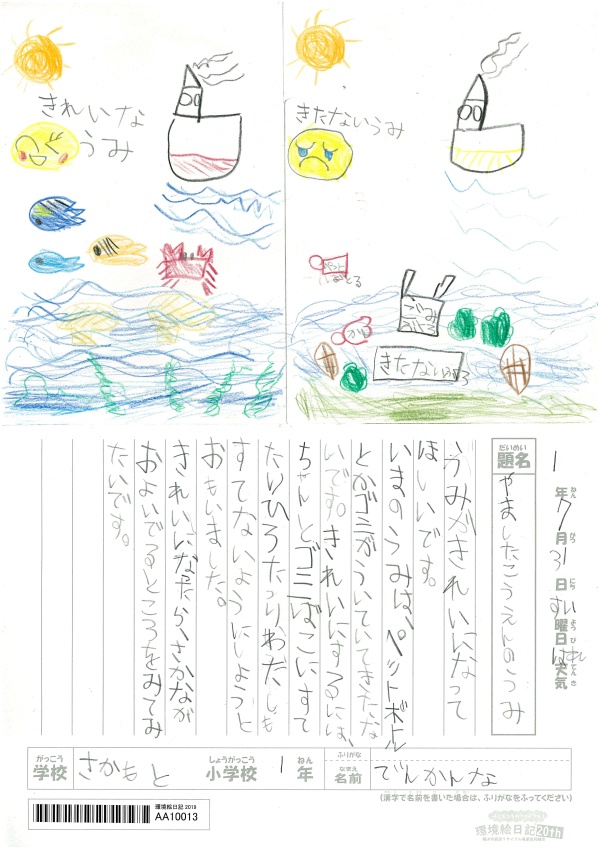 きれいな
うみ
きたないうみ
ペット
ぼとる
かん
ごみ
ぶくろ
きたないふくろ
1年7月31日すい曜日はれ天気
ねん がつ にち ようび てんき
だいめい
題名
やましたこうえんのうみ
うみがきれいになって
ほしいです。
いまのうみは、ペットボトル
とかゴミがういていてきたな
いです。きれいにするには、
ちゃんとゴミばこにすて
たりひろったりわたしも
すてないようにしようと
おもいました。
きれいになったらさかなが
およいでるところをみてみ
たいです。
がっこう しょうがっこう ねん ふりがな
学校 さかもと 小学校 1年
なまえ
名前 でんかんな
(漢字で名前を書いた場合は、ふりがなをふってください)
環境絵日記 2019
AA10013
環境絵日記20th